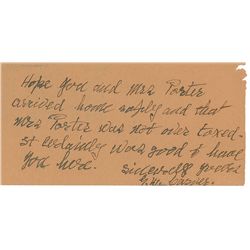 Hope you and Mrs Porter
arrived home safely and that
Mrs Porter was not over taxed-
It certainly was good to have
you here.
Sincerely yours